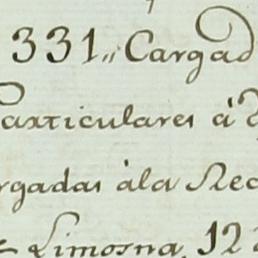 331,, Cargad
articulares â
rgadas âla Rec
Limosna, 12